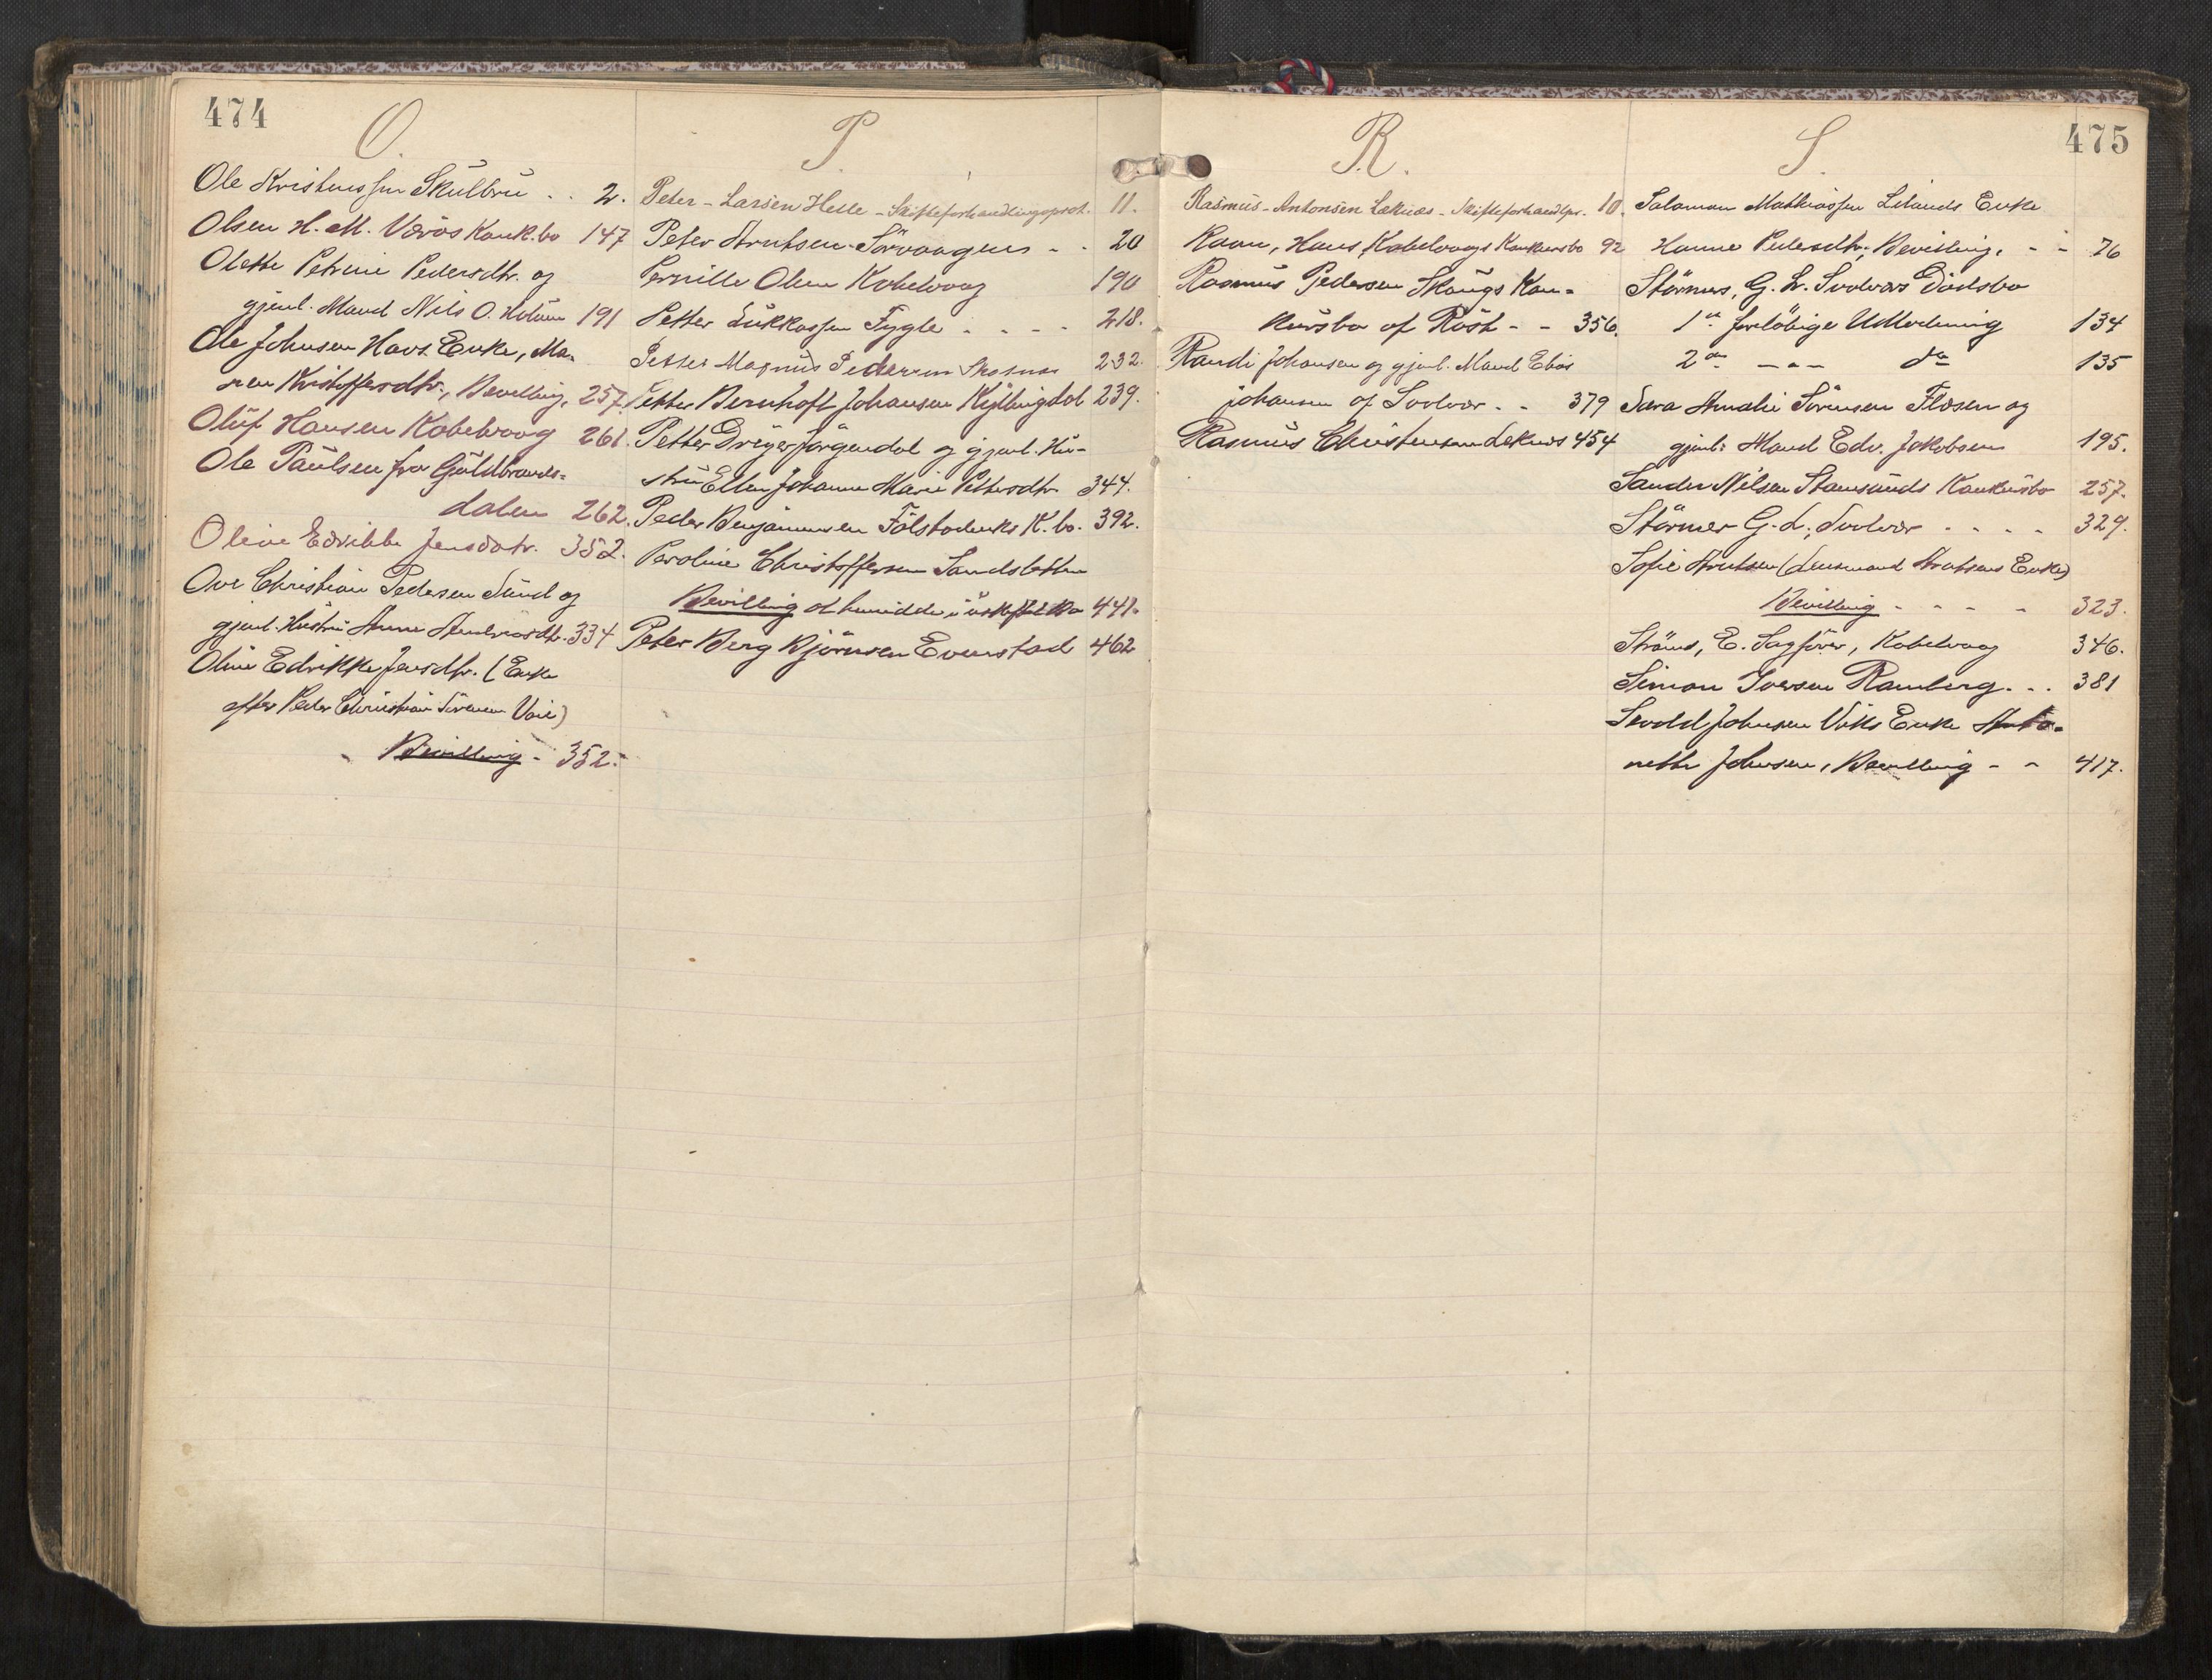 474
O.
Ole Kristensen Skulbru . . 2.
Olsen H. M. Værøs Konk.bo 147
Olette Petrine Pedersdtr. og
gjenl. Mand Nils O. 191
Ole Johnsen Havs Enke, Ma-
ren Kristoffersdtr., Bevilling, 257.
Oluf Hansen Kabelvaag 261.
Ole Paulsen fra Guldbrands-
dalen 262.
Oline Edrikke Jensdatr. 352.
Ove Christian Pedersen Sund og
gjenl. Hustru Anne Andreasdtr. 334
Oline Edrikke Jensdtr. (Enke
efter Peder Christian Sörensen Voie)
Bevilling - 352.
P.
Peter - Larsen Helle - Skifteforhandlingsprot. 11.
Peter Arntsen Sørvaagens - - 20
Pernille Olsen Kabelvaag 190
Petter Lukkassen Fygle - - - - 218.
Petter Magnus Pedersen 232.
Petter Bernhoft Johansen Kyllingdal 239.
Petter Dreyer Jørgendal og gjenl. Hu-
stru Ellen Johanne Marie Pettersdtr. 344.
Peder Benjaminsen Fölstadenes K. bo. 392.
Peroline Christoffersen Sandsletten
Bevilling at hensidde i uskiftet Bo 441.
Peter Berg Bjørnsen Evenstad 462
R.
Rasmus - Antonsen Leknes - Skifteforhandlpr. 10.
Raan, Hans, Kabelvaags Konkursbo 92
Rasmus Pedersen Skaugs Kon-
kursbo af Röst - - 356.
Randi Johansen og gjenl. Mand Ebias
Johansen af Svolvær - - 379
Rasmus Christensen Leknes 454
475
S.
Salamon Mathiassen Lilands Enke
Hanne Pedersdtr, Bevilling. - - 76
Störmer, G. L. Svolvær Dödsbo
1ste forlöbige Utlodning 134
2den - - - do 135
Sara Amalie Sörensen Flæsen og
gjenl. Mand Edv. Jakobsen 195.
Sander Nilsen Stamsunds Konkursbo 257.
Störmer G. L. Svolvær . . . . 329.
Sofie Arntsen (Lensmand Arntsens Enke)
Bevilling - - - - 323.
Ströms, E. Sagförer, Kabelvaag 346.
Simon Iversen Ramberg. . . 381
Sevald Johnsen Viks Enke Anto-
nette Johnsen, Bevilling - - 417.